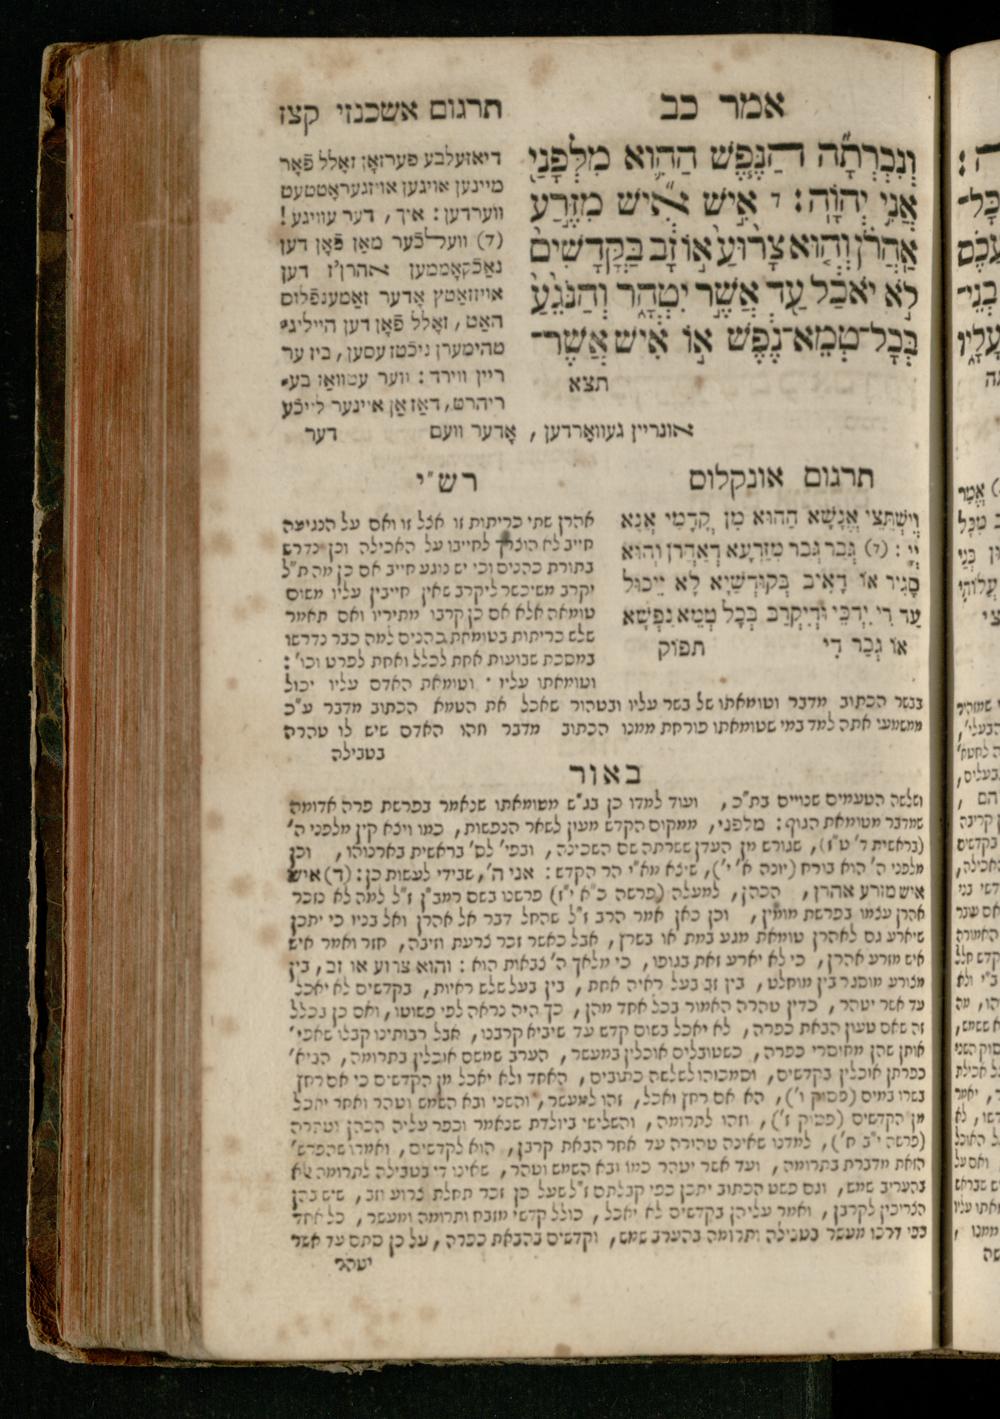 אמר כב
תרגום אשכנזי קצז
וְנִכְרְתָה הַנֶּפֶשׁ הַהִוא מִלְּפָנַי
אֲנִי יְהוָה: ד אִישׁ אִישׁ מִזֶּרַע
אַהֲרֹן וְהוּא צָרוּעַ אוֹ זָב בַּקֳּדָשִׁים
לֹא יֹאכַל עַד אֲשֶׁר יִטְהָר וְהַנֹּגֵעַ
בְּכָל־טְמֵא־נֶפֶשׁ אוֹ אִישׁ אֲשֶׁר־
תצא
דיאזעלבע פערזאָן זאָלל פֿאָר
מיינען אויגען אויזגעראָטטעט
ווערדען: איך, דער עוויגע!
(ד) וועלכֿער מאַן פֿאָן דען
נאַכֿקאָממען אהרן'ז דען
אויזזאַטץ אָדער זאַמענפֿלוס
האַט, זאָלל פֿאָן דען הייליג־
טהימערן ניכֿטז עסען, ביז ער
ריין ווירד: ווער עטוואַז בע־
ריהרט, דאַז אַן איינער לייכֿע
אונריין געוואָרדען, אָדער וועם דער
תרגום אונקלוס
וְיִשְׁתֵּצֵי אֱנָשָׁא הַהוּא מִן קֳדָמַי אֲנָא
יְיָ: (ד) גְּבַר גְּבַר מִזַּרְעָא דְאַהֲרֹן וְהוּא
סְגִיר אוֹ דָאִיב בְּקוּדְשַׁיָּא לָא יֵיכוּל
עַד דִּי יִדְכֵּי וּדְיִקְרַב בְּכָל טְמֵא נַפְשָׁא
אוֹ גְבַר דִּי תפוק
רש"י
אהרן שתי כריתות זו אצל זו ואם על הנגיעה
חייב לא הוצרך לחייבו על האכילה וכן נדרש
בתורת כהנים וכי יש נוגע חייב אם כן מה ת"ל
יקרב משיכשר ליקרב שאין חייבין עליו משום
טומאה אלא אם כן קרבו מתיריו ואם תאמר
שלש כריתות בטומאת כהנים למה כבר נדרשו
במסכת שבועות אחת לכלל ואחת לפרט וכו':
וטומאתו עליו · וטומאת האדם עליו יכול
בבשר הכתוב מדבר וטומאתו של בשר עליו ובטהור שאכל את הטמא הכתוב מדבר ע"כ
ממשמעו אתה למד במי שטומאתו פורחת ממנו הכתוב מדבר וזהו האדם שיש לו טהרה
בטבילה
באור
ושלשה הטעמים שנויים בת"כ, ועוד למדו כן בג"ש מטומאתו שנאמר בפרשת פרה אדומה
שמדבר מטומאת הגוף: מלפני, ממקום הקדש מעין לשאר הנפשות, כמו ויצא קין מלפני ה'
(בראשית ד' ט"ז), שגורש מן העדן ששרתה שם השכינה, ובפי' לס' בראשית בארנוהו, וכן
מלפני ה' הוא בורח (יונה א' י'), שיצא מא"י הר הקדש: אני ה', שבידי לעשות כן: (ד) איש
איש מזרע אהרן, הכהן, למעלה (פרשה כ"א י"ז) פרשנו בשם רמב"ן ז"ל למה לא נזכר
אהרן עצמו בפרשת מומין, וכן כאן אמר הרב ז"ל שהחל דבר אל אהרן ואל בניו כי יתכן
שיארע גם לאהרן טומאת מגע במת או בשרץ, אבל כאשר זכר צרעת וזיבה, חזר ואמר איש
איש מזרע אהרן, כי לא יארע זאת בגופו, כי מלאך ה' צבאות הוא: והוא צרוע או זב, בין
מצורע מוסגר בין מוחלט, בין זב בעל ראיה אחת, בין בעל שלש ראיות, בקדשים לא יאכל
עד אשר יטהר, כדין טהרה האמור בכל אחד מהן, כך היה נראה לפי פשוטו, ואם כן בכלל
זה שאם טעון הבאת כפרה, לא יאכל בשום קדש עד שיביא קרבנו, אבל רבותינו קבלו שאפי'
אותן שהן מחוסרי כפרה, כשטובלים אוכלין במעשר, הערב שמשם אוכלין בתרומה, הביא'
כפרתן אוכלין בקדשים, וסמכוהו לשלשה כתובים, האחד ולא יאכל מן הקדשים כי אם רחץ
בשרו במים (פסוק ו'), הא אם רחץ ואכל, זהו למעשר, והשני ובא השמש וטהר ואחר יאכל
מן הקדשים (פסוק ז'), וזהו לתרומה, והשלישי ביולדת שנאמר וכפר עליה הכהן וטהרה
(פרשה י"ב ח'), למדנו שאינה טהורה עד אחר הבאת קרבן, הוא לקדשים, ואמרו שהפרש'
הזאת מדברת בתרומה, ועד אשר יטהר כמו ובא השמש וטהר, שאינו די בטבילה לתרומה לא
בהעריב שמש, וגם פשט הכתוב יתכן כפי קבלתם ז"ל שעל כן זכר תחלת צרוע וזב, שיש בהן
הצריכין לקרבן, ואמר עליהן בקדשים לא יאכל, כולל קדשי מזבח ותרומה ומעשר, כל אחד
כפי דרכו מעשר בטבילה ותרומה בהערב שמש, וקדשים בהבאת כפרה, על כן סתם עד אשר
יטהר